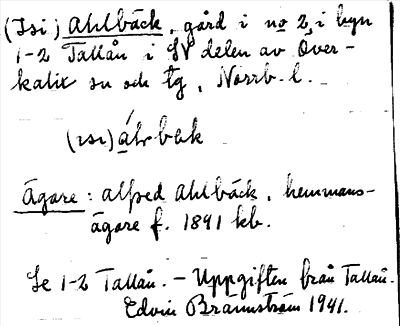 (Isi) Ahlbäck, gård i no 2, i byn
1-2 Tallån i SV delen av Över-
kalix sn och tg, Norrb. l.
(ısı)
Ägare: Alfred Ahlbäck, hemmans-
ägare f. 1891 kb.
Se 1-2 Tallån. – Uppgiften från Tallån.
Edvin Brännström 1941.